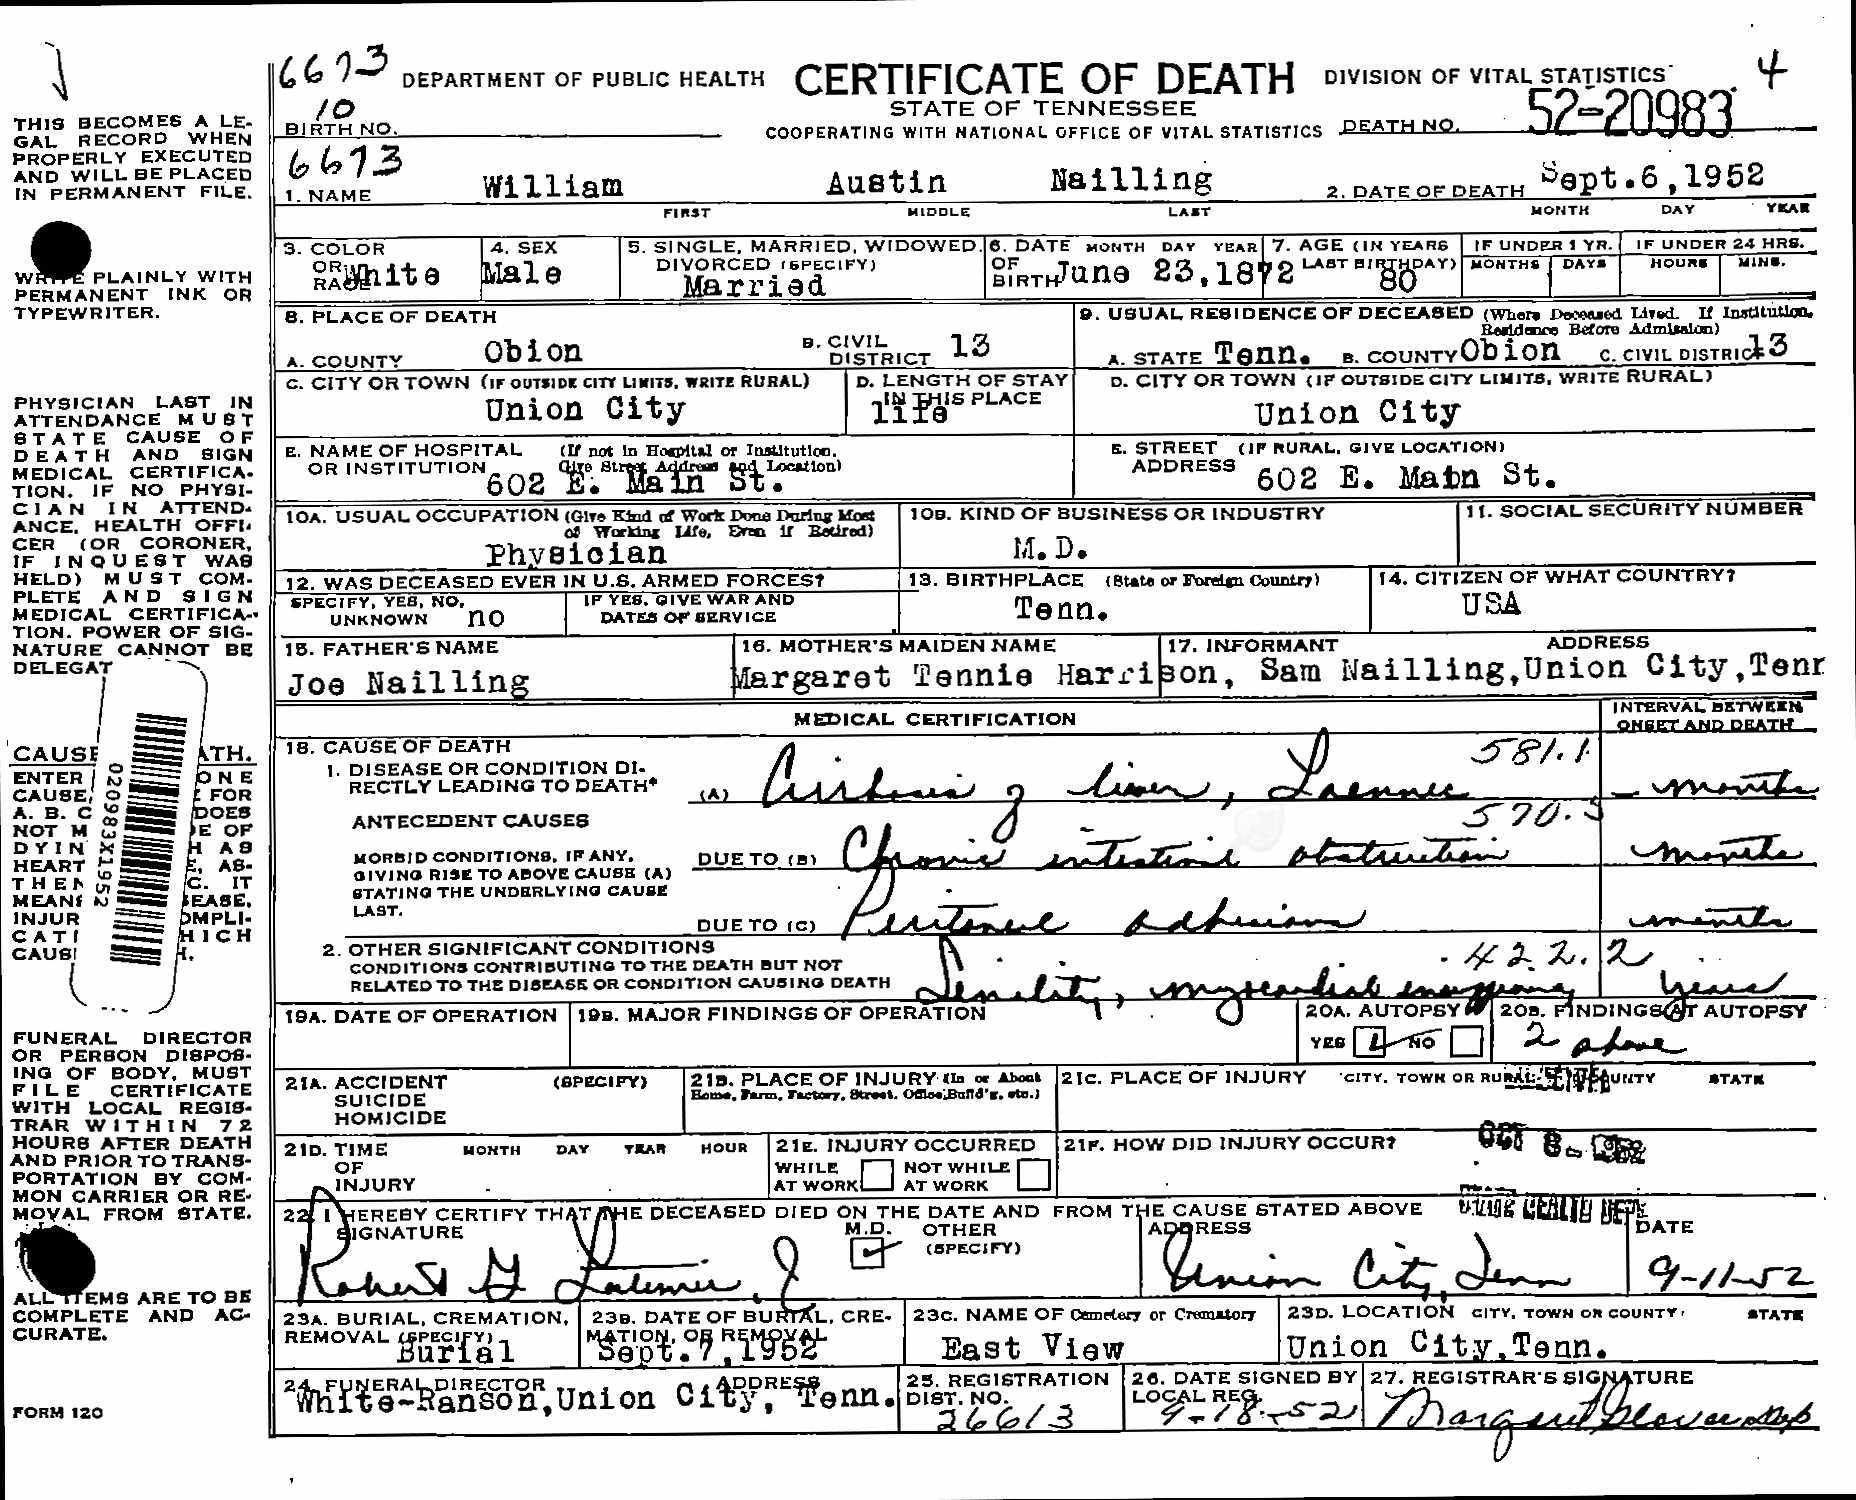 6673 DEPARTMENT OF PUBLIC HEALTH CERTIFICATE OF DEATH DIVISION OF VITAL STATISTICS 4
10 STATE OF TENNESSEE
BIRTH NO. COOPERATING WITH NATIONAL OFFICE OF VITAL STATISTICS DEATH NO. 52-20983
6673
1. NAME William Austin Nailling 2. DATE OF DEATH Sept.6,1952
FIRST MIDDLE LAST MONTH DAY YEAR
3. COLOR OR RACE White 4. SEX Male 5. SINGLE, MARRIED, WIDOWED, DIVORCED (SPECIFY) Married 6. DATE OF BIRTH MONTH DAY YEAR June 23,1872 7. AGE (IN YEARS LAST BIRTHDAY) 80 IF UNDER 1 YR. MONTHS DAYS IF UNDER 24 HRS. HOURS MINS.
8. PLACE OF DEATH
A. COUNTY Obion B. CIVIL DISTRICT 13
9. USUAL RESIDENCE OF DECEASED (Where Deceased Lived. If Institution, Residence Before Admission)
A. STATE Tenn. B. COUNTY Obion C. CIVIL DISTRICT 13
C. CITY OR TOWN (IF OUTSIDE CITY LIMITS, WRITE RURAL) Union City
D. LENGTH OF STAY IN THIS PLACE life
D. CITY OR TOWN (IF OUTSIDE CITY LIMITS, WRITE RURAL) Union City
E. NAME OF HOSPITAL OR INSTITUTION (If not in Hospital or Institution, Give Street Address and Location) 602 E. Main St.
E. STREET ADDRESS (IF RURAL, GIVE LOCATION) 602 E. Main St.
10A. USUAL OCCUPATION (Give Kind of Work Done During Most of Working Life, Even if Retired) Physician
10B. KIND OF BUSINESS OR INDUSTRY M.D.
11. SOCIAL SECURITY NUMBER
12. WAS DECEASED EVER IN U.S. ARMED FORCES?
SPECIFY, YES, NO, UNKNOWN no IF YES, GIVE WAR AND DATES OF SERVICE
13. BIRTHPLACE (State or Foreign Country) Tenn.
14. CITIZEN OF WHAT COUNTRY? USA
15. FATHER'S NAME Joe Nailling
16. MOTHER'S MAIDEN NAME Margaret Tennie Harrison,
17. INFORMANT ADDRESS Sam Nailling,Union City,Tenn
MEDICAL CERTIFICATION
INTERVAL BETWEEN ONSET AND DEATH
18. CAUSE OF DEATH
1. DISEASE OR CONDITION DIRECTLY LEADING TO DEATH* (A) Cirrhosis of liver, Laennec 581.1 – months
ANTECEDENT CAUSES 570.5
MORBID CONDITIONS, IF ANY, GIVING RISE TO ABOVE CAUSE (A) STATING THE UNDERLYING CAUSE LAST.
DUE TO (B) Chronic intestinal obstruction months
DUE TO (C) Peritoneal adhesions months
2. OTHER SIGNIFICANT CONDITIONS 422.2
CONDITIONS CONTRIBUTING TO THE DEATH BUT NOT
RELATED TO THE DISEASE OR CONDITION CAUSING DEATH Senility, myocardial years
19A. DATE OF OPERATION 19B. MAJOR FINDINGS OF OPERATION 20A. AUTOPSY YES NO 20B. FINDINGS AT AUTOPSY 2 above
21A. ACCIDENT SUICIDE HOMICIDE (SPECIFY)
21B. PLACE OF INJURY (In or About Home, Farm, Factory, Street, Office Build'g, etc.)
21C. PLACE OF INJURY CITY, TOWN OR RURAL COUNTY STATE
21D. TIME OF INJURY MONTH DAY YEAR HOUR
21E. INJURY OCCURRED WHILE AT WORK NOT WHILE AT WORK
21F. HOW DID INJURY OCCUR?
OCT 8 - 1952
22. I HEREBY CERTIFY THAT THE DECEASED DIED ON THE DATE AND FROM THE CAUSE STATED ABOVE
SIGNATURE M.D. OTHER (SPECIFY) ADDRESS DATE
Robert G Latimer Jr Union City, Tenn 9-11-52
23A. BURIAL, CREMATION, REMOVAL (SPECIFY) Burial
23B. DATE OF BURIAL, CREMATION, OR REMOVAL Sept.7,1952
23C. NAME OF Cemetery or Crematory East View
23D. LOCATION CITY, TOWN OR COUNTY STATE Union City,Tenn.
24. FUNERAL DIRECTOR ADDRESS White-Ranson,Union City, Tenn.
25. REGISTRATION DIST. NO. 26613
26. DATE SIGNED BY LOCAL REG. 9-18-52
27. REGISTRAR'S SIGNATURE Margaret Glover Dep
THIS BECOMES A LE-
GAL RECORD WHEN
PROPERLY EXECUTED
AND WILL BE PLACED
IN PERMANENT FILE.
WRITE PLAINLY WITH
PERMANENT INK OR
TYPEWRITER.
PHYSICIAN LAST IN
ATTENDANCE MUST
STATE CAUSE OF
DEATH AND SIGN
MEDICAL CERTIFICA-
TION. IF NO PHYSI-
CIAN IN ATTEND-
ANCE, HEALTH OFFI-
CER (OR CORONER,
IF INQUEST WAS
HELD) MUST COM-
PLETE AND SIGN
MEDICAL CERTIFICA-
TION. POWER OF SIG-
NATURE CANNOT BE
DELEGAT
CAUSE ATH.
ENTER ONE
CAUSE, FOR
A. B. C DOES
NOT M E OF
DYIN H AS
HEART E, AS-
THEN C. IT
MEANS EASE,
INJUR OMPLI-
CATI HICH
CAUS H.
020983X1952
FUNERAL DIRECTOR
OR PERSON DISPOS-
ING OF BODY, MUST
FILE CERTIFICATE
WITH LOCAL REGIS-
TRAR WITHIN 72
HOURS AFTER DEATH
AND PRIOR TO TRANS-
PORTATION BY COM-
MON CARRIER OR RE-
MOVAL FROM STATE.
ALL ITEMS ARE TO BE
COMPLETE AND AC-
CURATE.
FORM 120